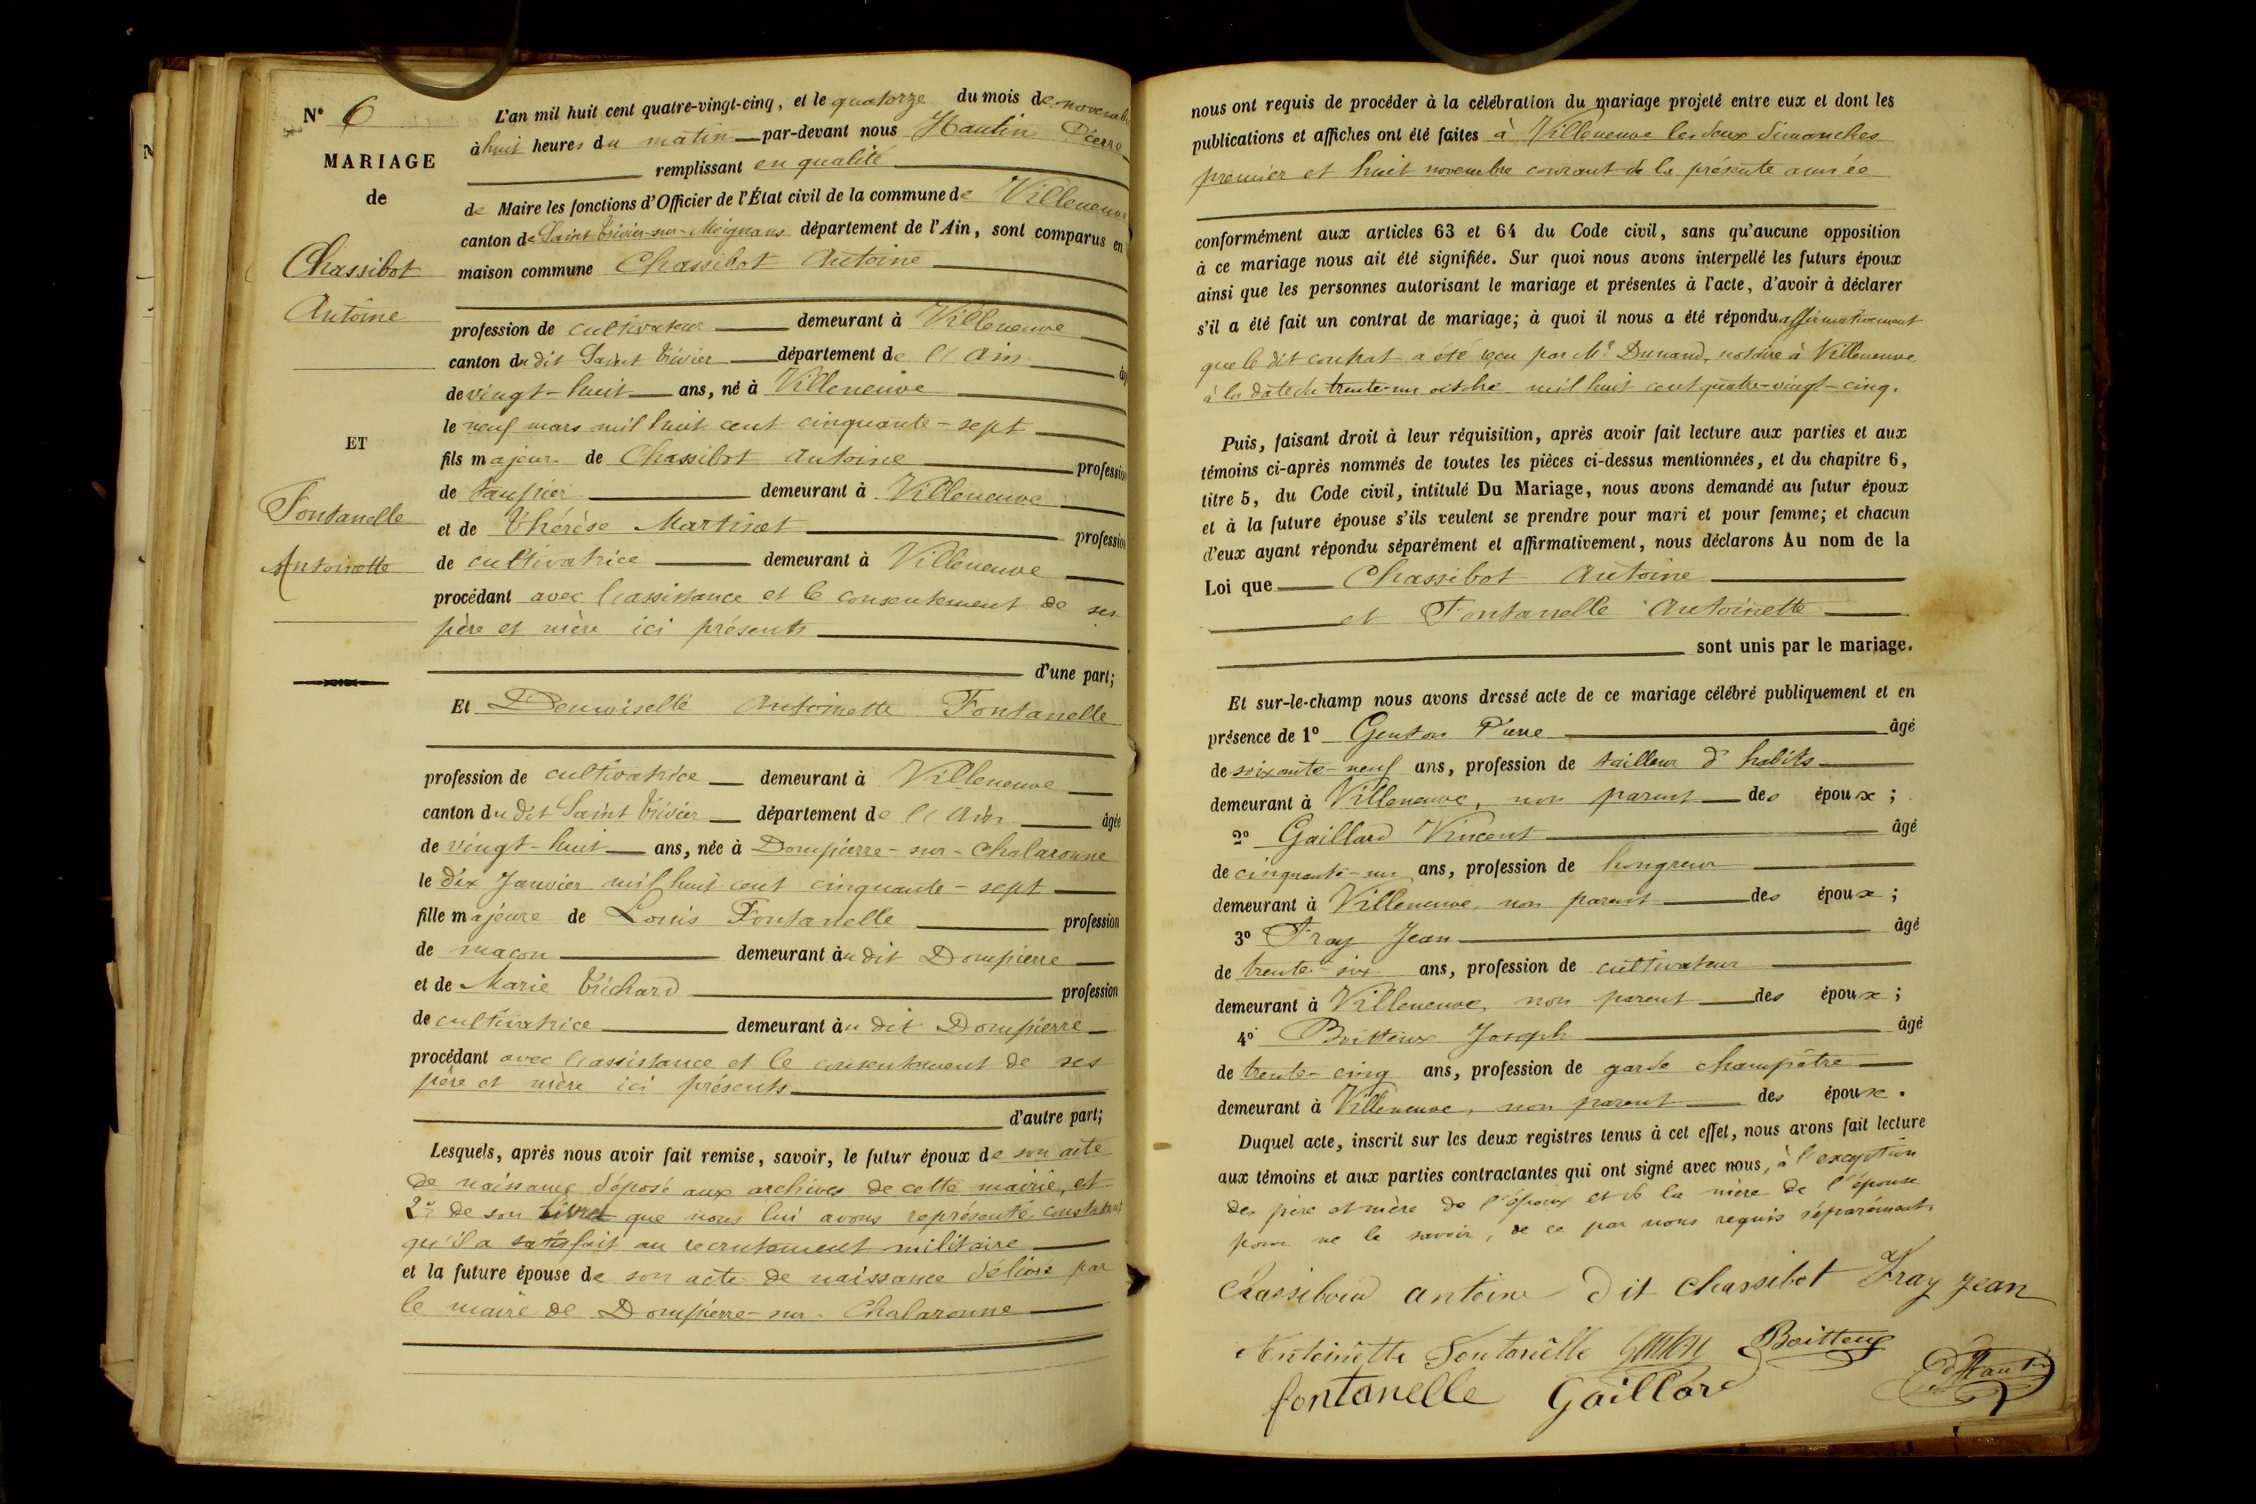 N° 6
MARIAGE
de
Chassibot
Antoine
ET
Fontanelle
Antoinette
L'an mil huit cent quatre-vingt-cinq, et le quatorze du mois de novembre
à huit heures du matin par-devant nous Hautin Pierre
remplissant en qualité
de Maire les fonctions d'Officier de l'État civil de la commune de Villeneuve
canton de Saint Trivier-sur-Moignans département de l'Ain, sont comparus en
maison commune Chassibot Antoine
profession de cultivateur demeurant à Villeneuve
canton du dit Saint Trivier département de l'Ain âg
de vingt-huit ans, né à Villeneuve
le neuf mars mil huit cent cinquante-sept
fils majeur de Chassibot Antoine profession
de taupier demeurant à Villeneuve
et de Thérèse Martinet profession
de cultivatrice demeurant à Villeneuve
procédant avec l'assistance et le consentement de ses
père et mère ici présents
d'une part;
Et Demoiselle Antoinette Fontanelle
profession de cultivatrice demeurant à Villeneuve
canton du dit Saint Trivier département de l'Ain âgée
de vingt-huit ans, née à Dompierre-sur-Chalaronne
le dix Janvier mil huit cent cinquante-sept
fille majeure de Louis Fontanelle profession
de maçon demeurant àu dit Dompierre
et de Marie Trichard profession
de cultivatrice demeurant àu dit Dompierre
procédant avec l'assistance et le consentement de ses
père et mère ici présents
d'autre part;
Lesquels, après nous avoir fait remise, savoir, le futur époux de son acte
de naissance déposé aux archives de cette mairie, et
2° de son livret que nous lui avons représenté constatant
qu'il a satisfait au recrutement militaire
et la future épouse de son acte de naissance délivré par
le maire de Dompierre-sur-Chalaronne
nous ont requis de procéder à la célébration du mariage projeté entre eux et dont les
publications et affiches ont été faites à Villeneuve les deux dimanches
premier et huit novembre courant de la présente année
conformément aux articles 63 et 64 du Code civil, sans qu'aucune opposition
à ce mariage nous ait été signifiée. Sur quoi nous avons interpellé les futurs époux
ainsi que les personnes autorisant le mariage et présentes à l'acte, d'avoir à déclarer
s'il a été fait un contrat de mariage; à quoi il nous a été répondu affirmativement
que le dit contrat a été reçu par Me Dunand, notaire à Villeneuve
à la date du trente-un octobre mil huit cent quatre-vingt-cinq.
Puis, faisant droit à leur réquisition, après avoir fait lecture aux parties et aux
témoins ci-après nommés de toutes les pièces ci-dessus mentionnées, et du chapitre 6,
titre 5, du Code civil, intitulé Du Mariage, nous avons demandé au futur époux
et à la future épouse s'ils veulent se prendre pour mari et pour femme; et chacun
d'eux ayant répondu séparément et affirmativement, nous déclarons Au nom de la
Loi que Chassibot Antoine
et Fontanelle Antoinette
sont unis par le mariage.
Et sur-le-champ nous avons dressé acte de ce mariage célébré publiquement et en
présence de 1° Genton Pierre âgé
de soixante-neuf ans, profession de tailleur d'habits
demeurant à Villeneuve, non parent des époux;
2° Gaillard Vincent âgé
de cinquante-un ans, profession de hongreur
demeurant à Villeneuve, non parent des époux;
3° Fray Jean âgé
de trente-six ans, profession de cultivateur
demeurant à Villeneuve, non parent des époux;
4° Boitteux Joseph âgé
de trente-cinq ans, profession de garde champêtre
demeurant à Villeneuve, non parent des époux.
Duquel acte, inscrit sur les deux registres tenus à cet effet, nous avons fait lecture
aux témoins et aux parties contractantes qui ont signé avec nous, à l'exception
des père et mère de l'époux et de la mère de l'épouse
pour ne le savoir, de ce par nous requis séparément.
Chassiboud antoine dit chassibot Fray jean
Antoinette Fontanelle Genton Boitteux
fontanelle Gaillard Hautin